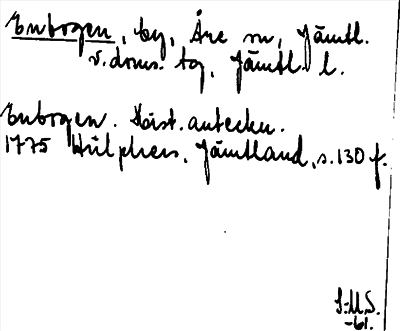 Enbogen, by, Åre sn, Jämtl.
v. doms. tg, Jämtl. l.
Enbogen. Hist. anteckn.
1775 Hülphers, Jämtland, s. 130 f.
S:M.S.
-61.